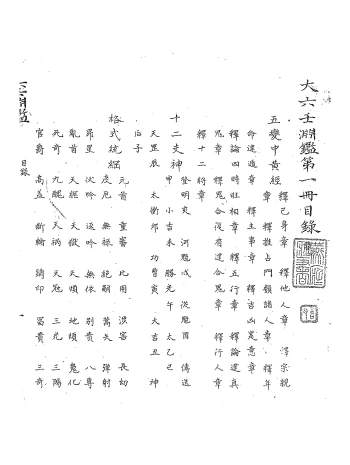 大六壬淵鑑第一冊目錄
五變中黃經
釋己身章 釋他人章 釋宗親
章 釋推占門類諸人章 釋年
命運道章 釋主事章 釋吉凶定意章
釋論四時旺相章 釋五行章 釋論遁真
鬼章 釋鬼合後有逢合鬼章 釋行人章
釋十二將章
十二支神
登明亥 河魁戌 從魁酉 傳送
申 小吉未 勝光午 太乙巳
天罡辰 太衝卯 功曹寅 大吉丑 神
后子
格式統綱
元首 重審 比用 涉害 長幼
虎尾 無祿 絕嗣 蒿矢 彈射
昴星 伏吟 返吟 無依 別責 八專
龍首 天經 天獄 天煩 地煩 鬼化
死奇 九醜 天禍 天寇 三光 三陽
官爵 高蓋 斲輪 鑄印 富貴 三奇
淵鑑
目錄